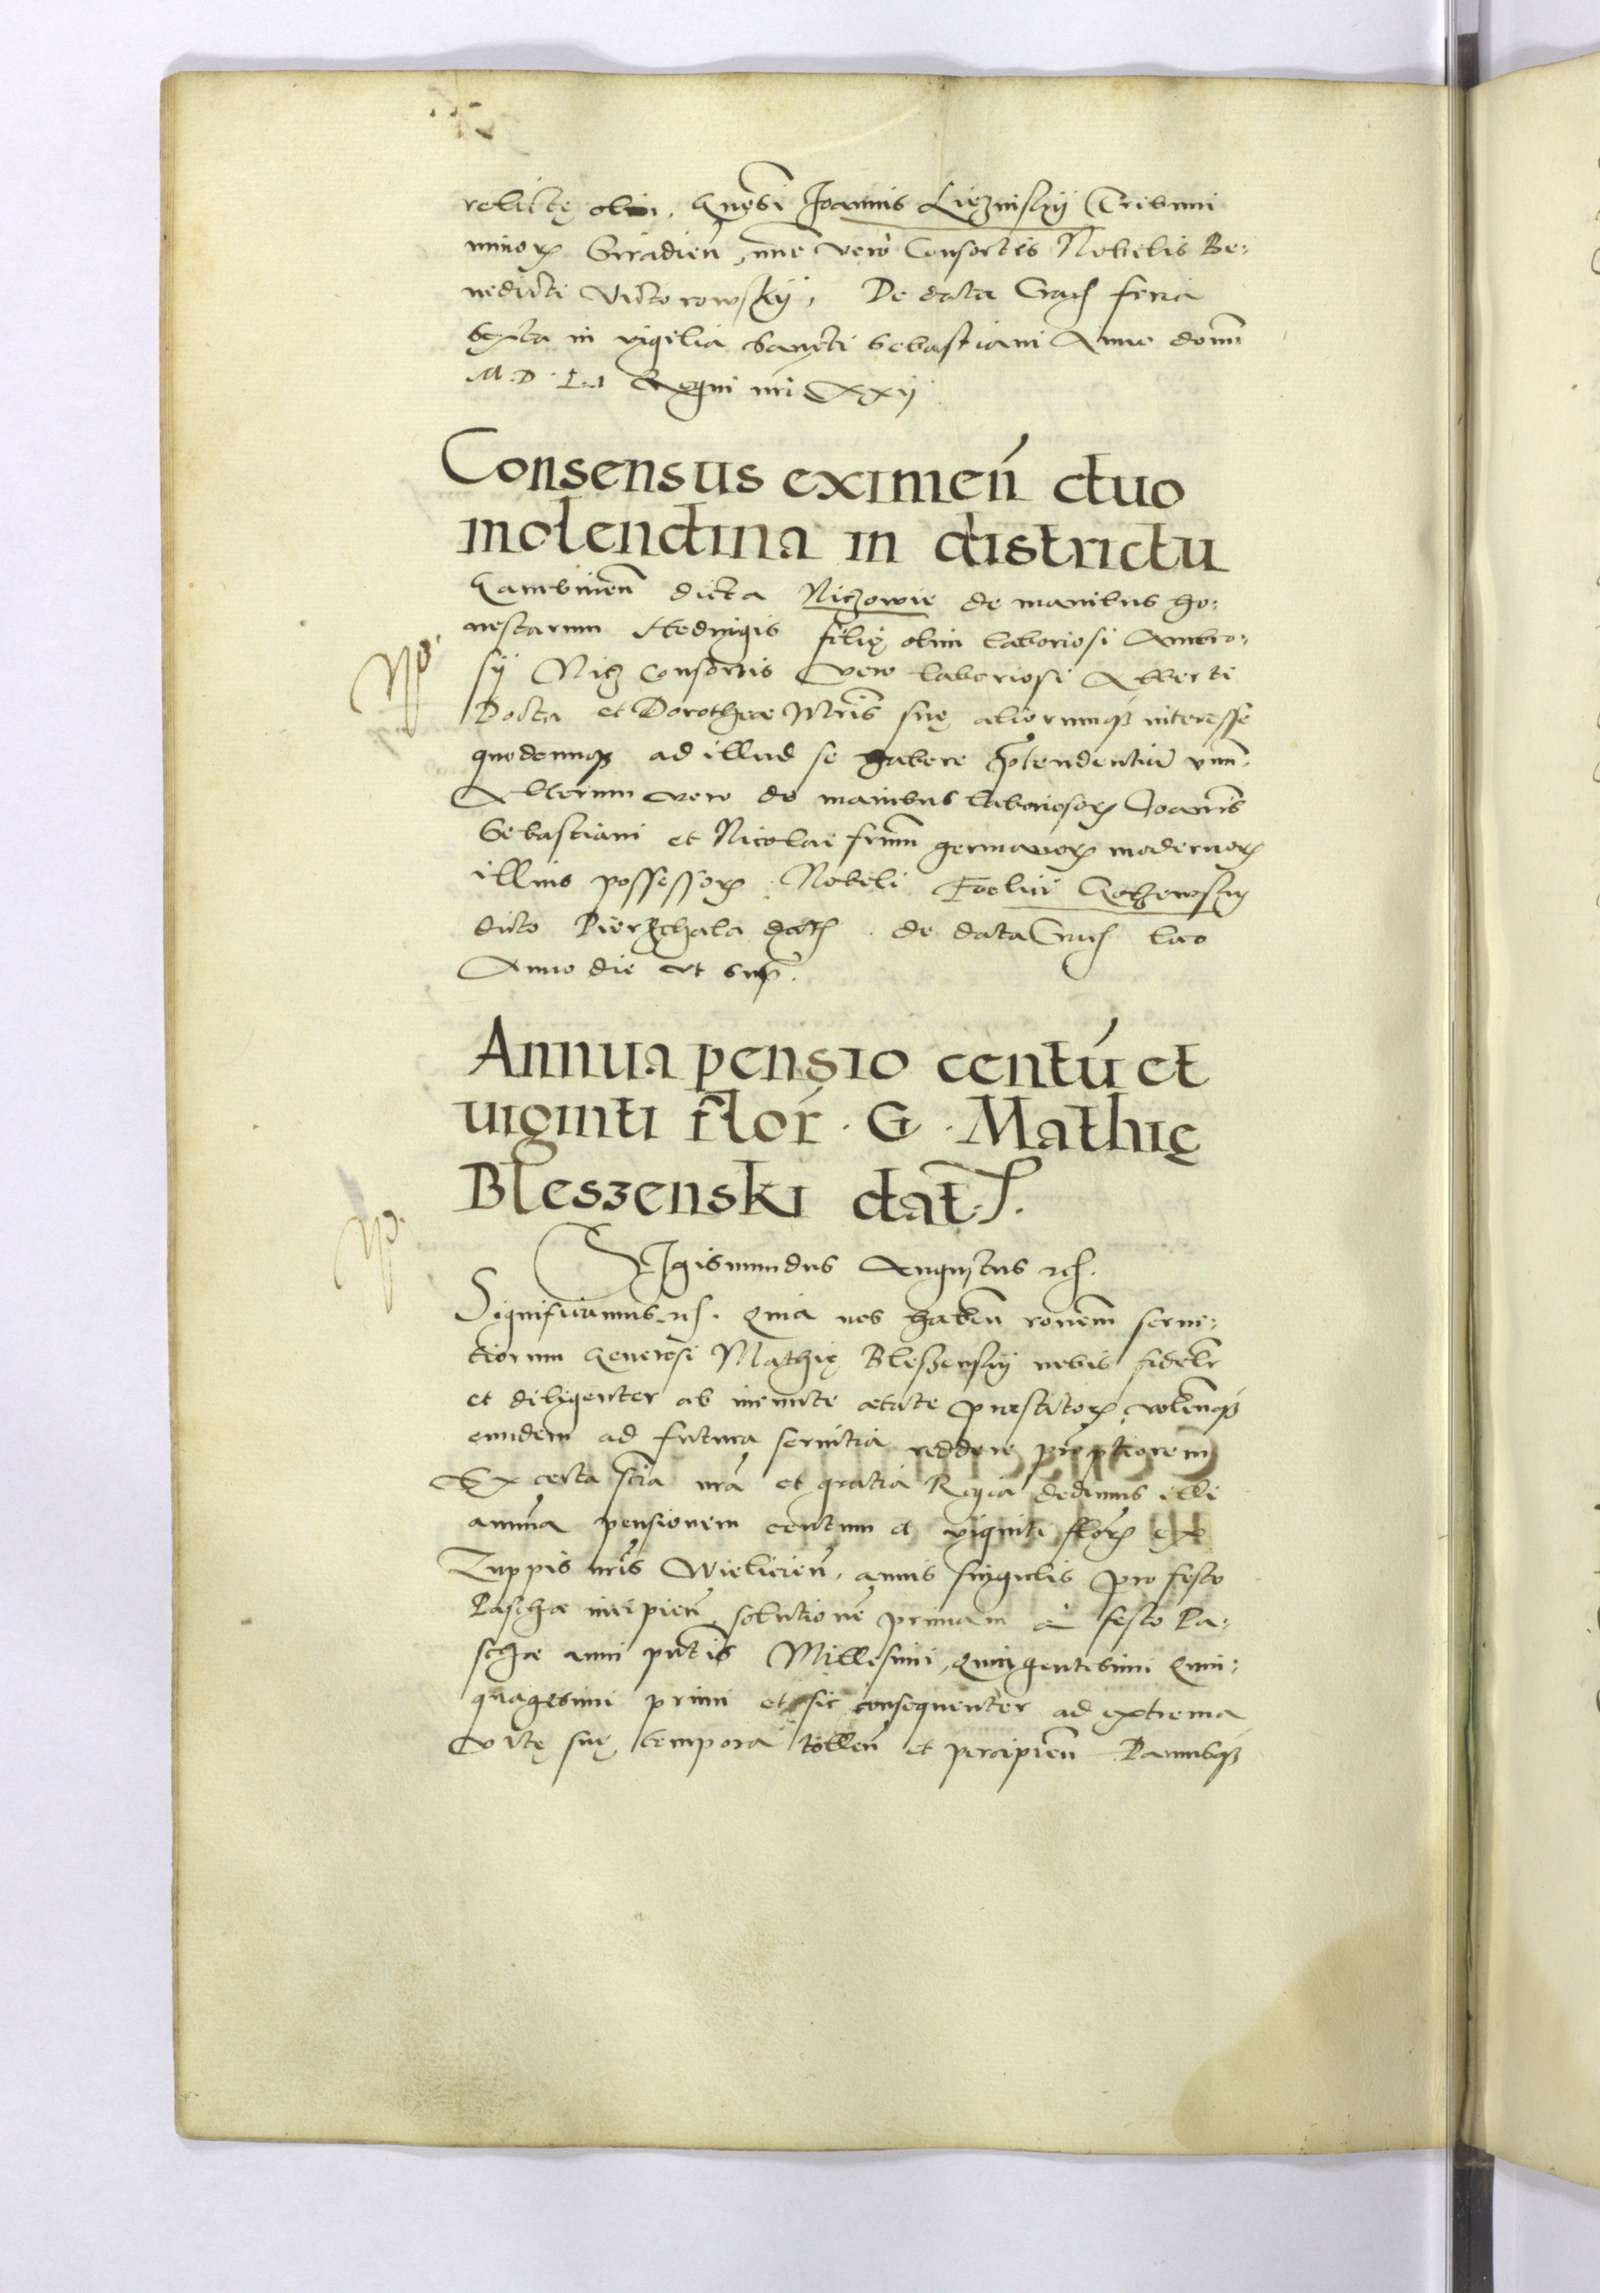 relictę olim. Gnosi Joannis Lięznisky Tribuni
minoꝝ Siradien̄, nūc vero Consortis Nobilis Be:
nedicti Victorowskij, De data Crac feria
sexta in vigilia Sancti Sebastiani Anno domī
M.D.LI Regni nr̄i XXij
Consensus eximen̄ duo
molendina in districtu
dicta Niczowie de manibus ho:
nestarum Hedvigis filię olim laboriosi Ambro:
sij Nicz consortis vero laboriosi Alberti
Docta et Dorotheæ Mr̄is suę aliorumqꝫ interesse
quodcunqꝫ ad illud se habere p̄tendentiū vnū.
Alterum vero de manibus laboriosoꝝ Joan̄is
Sebastiani et Nicolai fr̄um germanoꝝ modernoꝝ
illius possessoꝝ. Nobili
dicto Pierzchala dat. de data Crac
Anno die vt sup̄.
Annua pensio centū et
uiginti flor̄. G. Mathię
Bleszenski dat̄.
Sigismundus Augustus etc.
Significamus etc. Quia nos haben̄ rōnem servi:
tiorum Generosi Mathię Bleszensky nobis fidelr
et diligenter ab ineunte ætate præstitoꝝ, volen̄qꝫ
eundem ad futura servitia reddere promptiorem
Ex certa scīa nr̄a et gratia Regia dedimus illi
annuā pensionem centum et viginti floꝝ ex
Zuppis nr̄is Wielicien̄. annis singulis pro festo
Paschæ incipien̄ solutionē primam à festo Pa:
schæ anni pn̄tis Millesimi, Quingentesimi Quin:
quagesimi primi et sic consequenter ad extrema
vitę suę tempora tollen̄ et percipien̄ Damusqꝫ